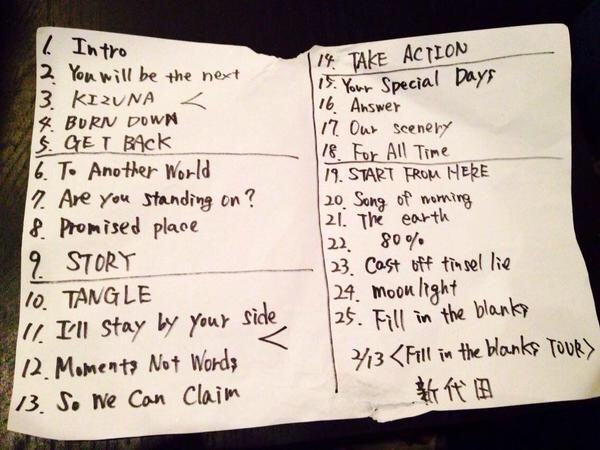 1. Intro
2. You will be the next
3. KIZUNA <
4. BURN DOWN
5. GET BACK
6. To Another World
7. Are you standing on?
8. Promised place
9. STORY
10. TANGLE
11. I'll stay by your side <
12. Moments Not Words
13. So We Can Claim
14. TAKE ACTION
15. Your Special Days
16. Answer
17. Our scenery
18. For All Time
19. START FROM HERE
20. Song of morning
21. The earth
22. 80%
23. Cast off tinsel lie
24. moonlight
25. Fill in the blanks
2/13 <Fill in the blanks TOUR>
新代田